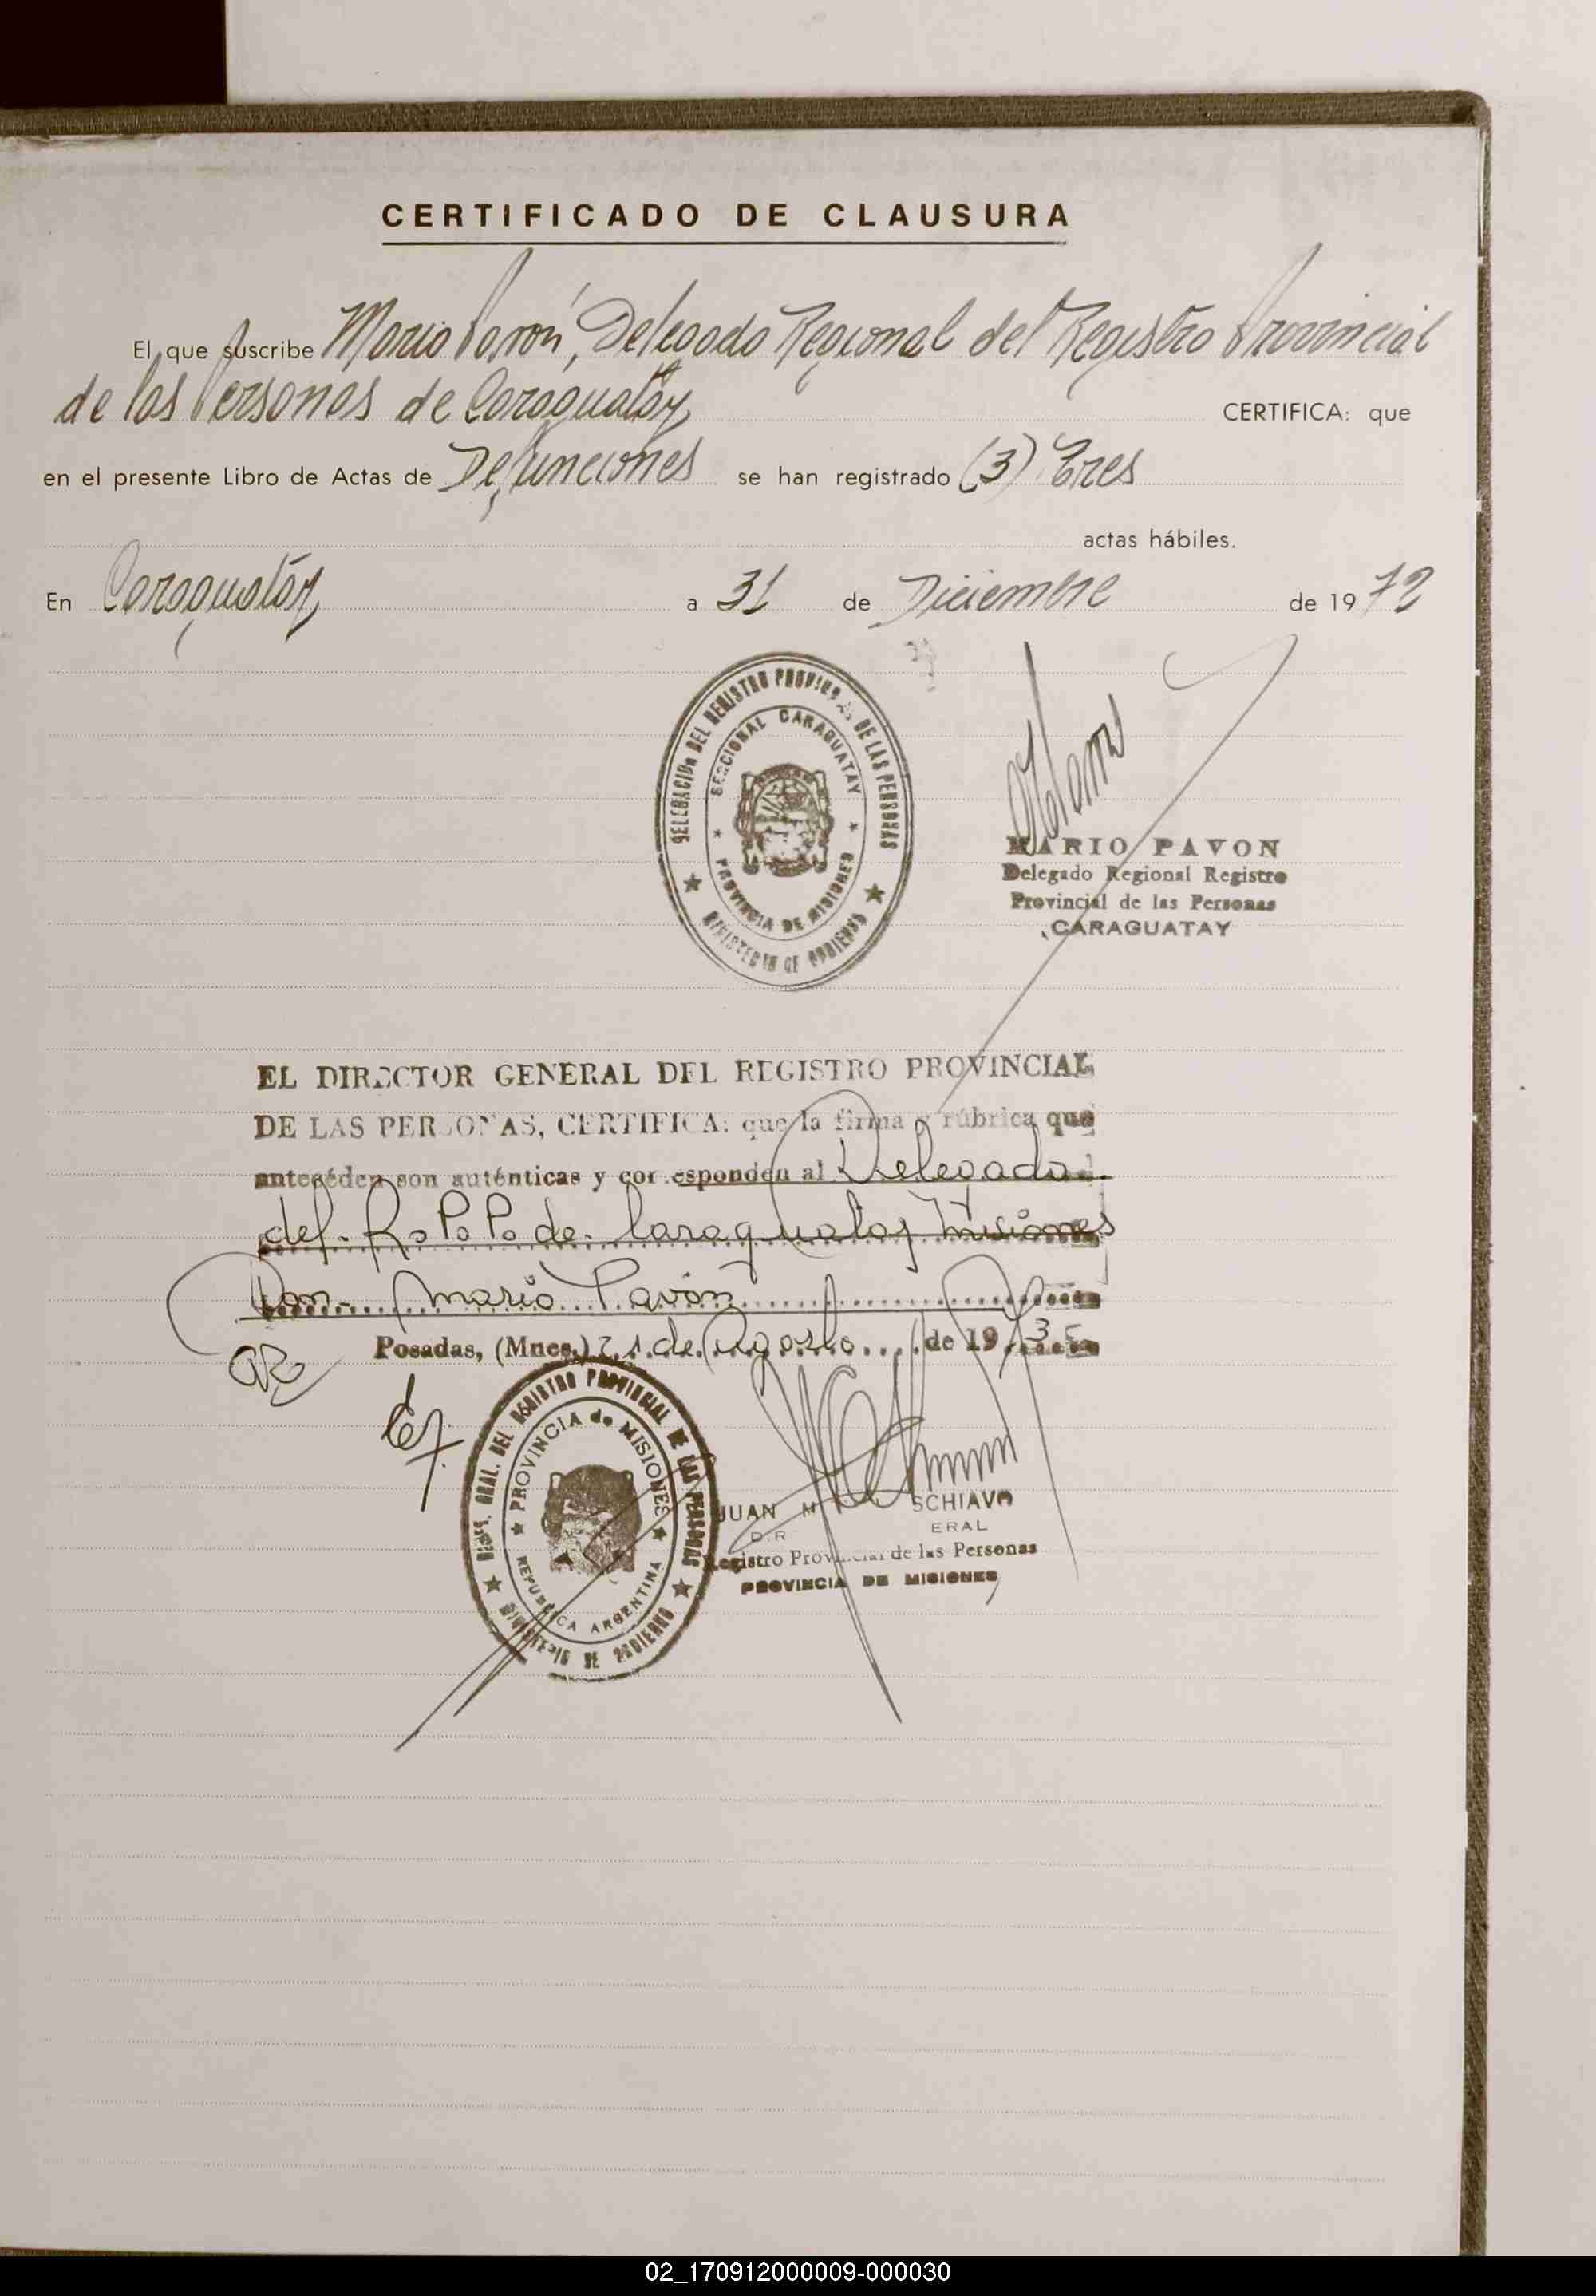 CERTIFICADO DE CLAUSURA
El que suscribe Mario Pavón, Delegado Regional del Registro Provincial
de las Personas de Caraguatay CERTIFICA: que
en el presente Libro de Actas de Defunciones se han registrado (3) Tres
actas hábiles.
En Caraguatay a 31 de Diciembre de 1972
DELEGACION DEL REGISTRO PROVINCIAL DE LAS PERSONAS
SECCIONAL CARAGUATAY
PROVINCIA DE MISIONES
MINISTERIO DE GOBIERNO
MARIO PAVON
Delegado Regional Registro
Provincial de las Personas
CARAGUATAY
EL DIRECTOR GENERAL DEL REGISTRO PROVINCIAL
DE LAS PERSONAS, CERTIFICA: que la firma y rúbrica que
anteceden son auténticas y corresponden al Delegado
del R. P. P. de Caraguatay Misiones
Don Mario Pavón
Posadas, (Mnes.) 21 de Agosto de 19
GRAL. DEL REGISTRO PROVINCIAL DE LAS PERSONAS
PROVINCIA de MISIONES
REPUBLICA ARGENTINA
MINISTERIO DE GOBIERNO
JUAN M SCHIAVO
ERAL
Registro Provincial de las Personas
PROVINCIA DE MISIONES
02_170912000009-000030